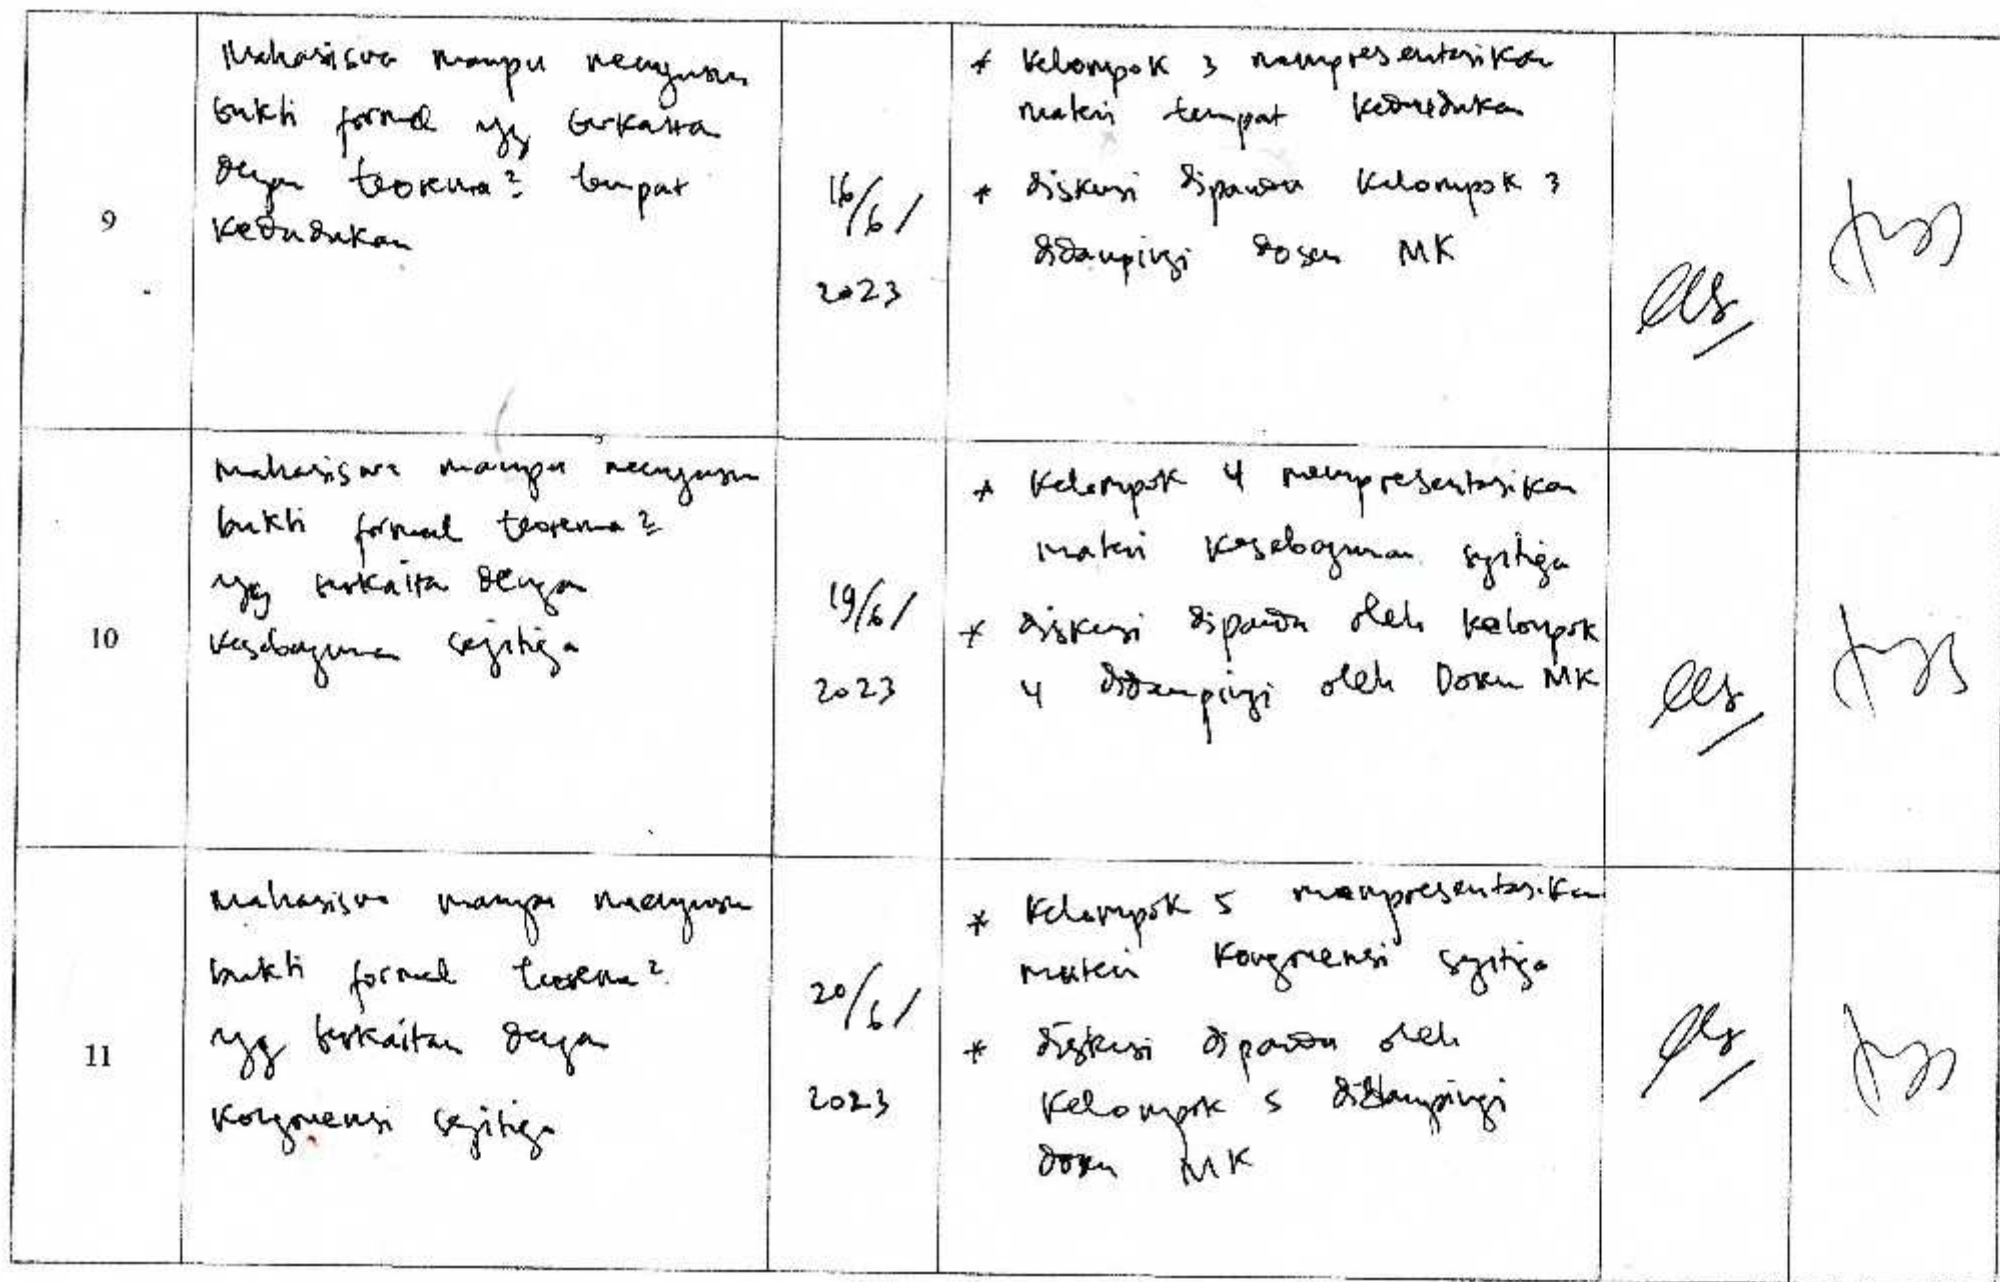 9
Mahasiswa mampu menyusun
bukti formal yg berkaitan
dengan teorema2 tempat
kedudukan
16/6/
2023
* Kelompok 3 mempresentasikan
materi tempat kedudukan
* diskusi dipandu Kelompok 3
didampingi dosen MK
10
mahasiswa mampu menyusun
bukti formal teorema2
yg berkaitan dengan
kesebangunan segitiga
19/6/
2023
* Kelompok 4 mempresentasikan
materi kesebangunan segitiga
* diskusi dipandu oleh kelompok
4 didampingi oleh Dosen MK
11
mahasiswa mampu menyusun
bukti formal teorema2
yg berkaitan dengan
kongruensi segitiga
20/6/
2023
* Kelompok 5 mempresentasikan
materi kongruensi segitiga
* diskusi dipandu oleh
Kelompok 5 didampingi
dosen MK